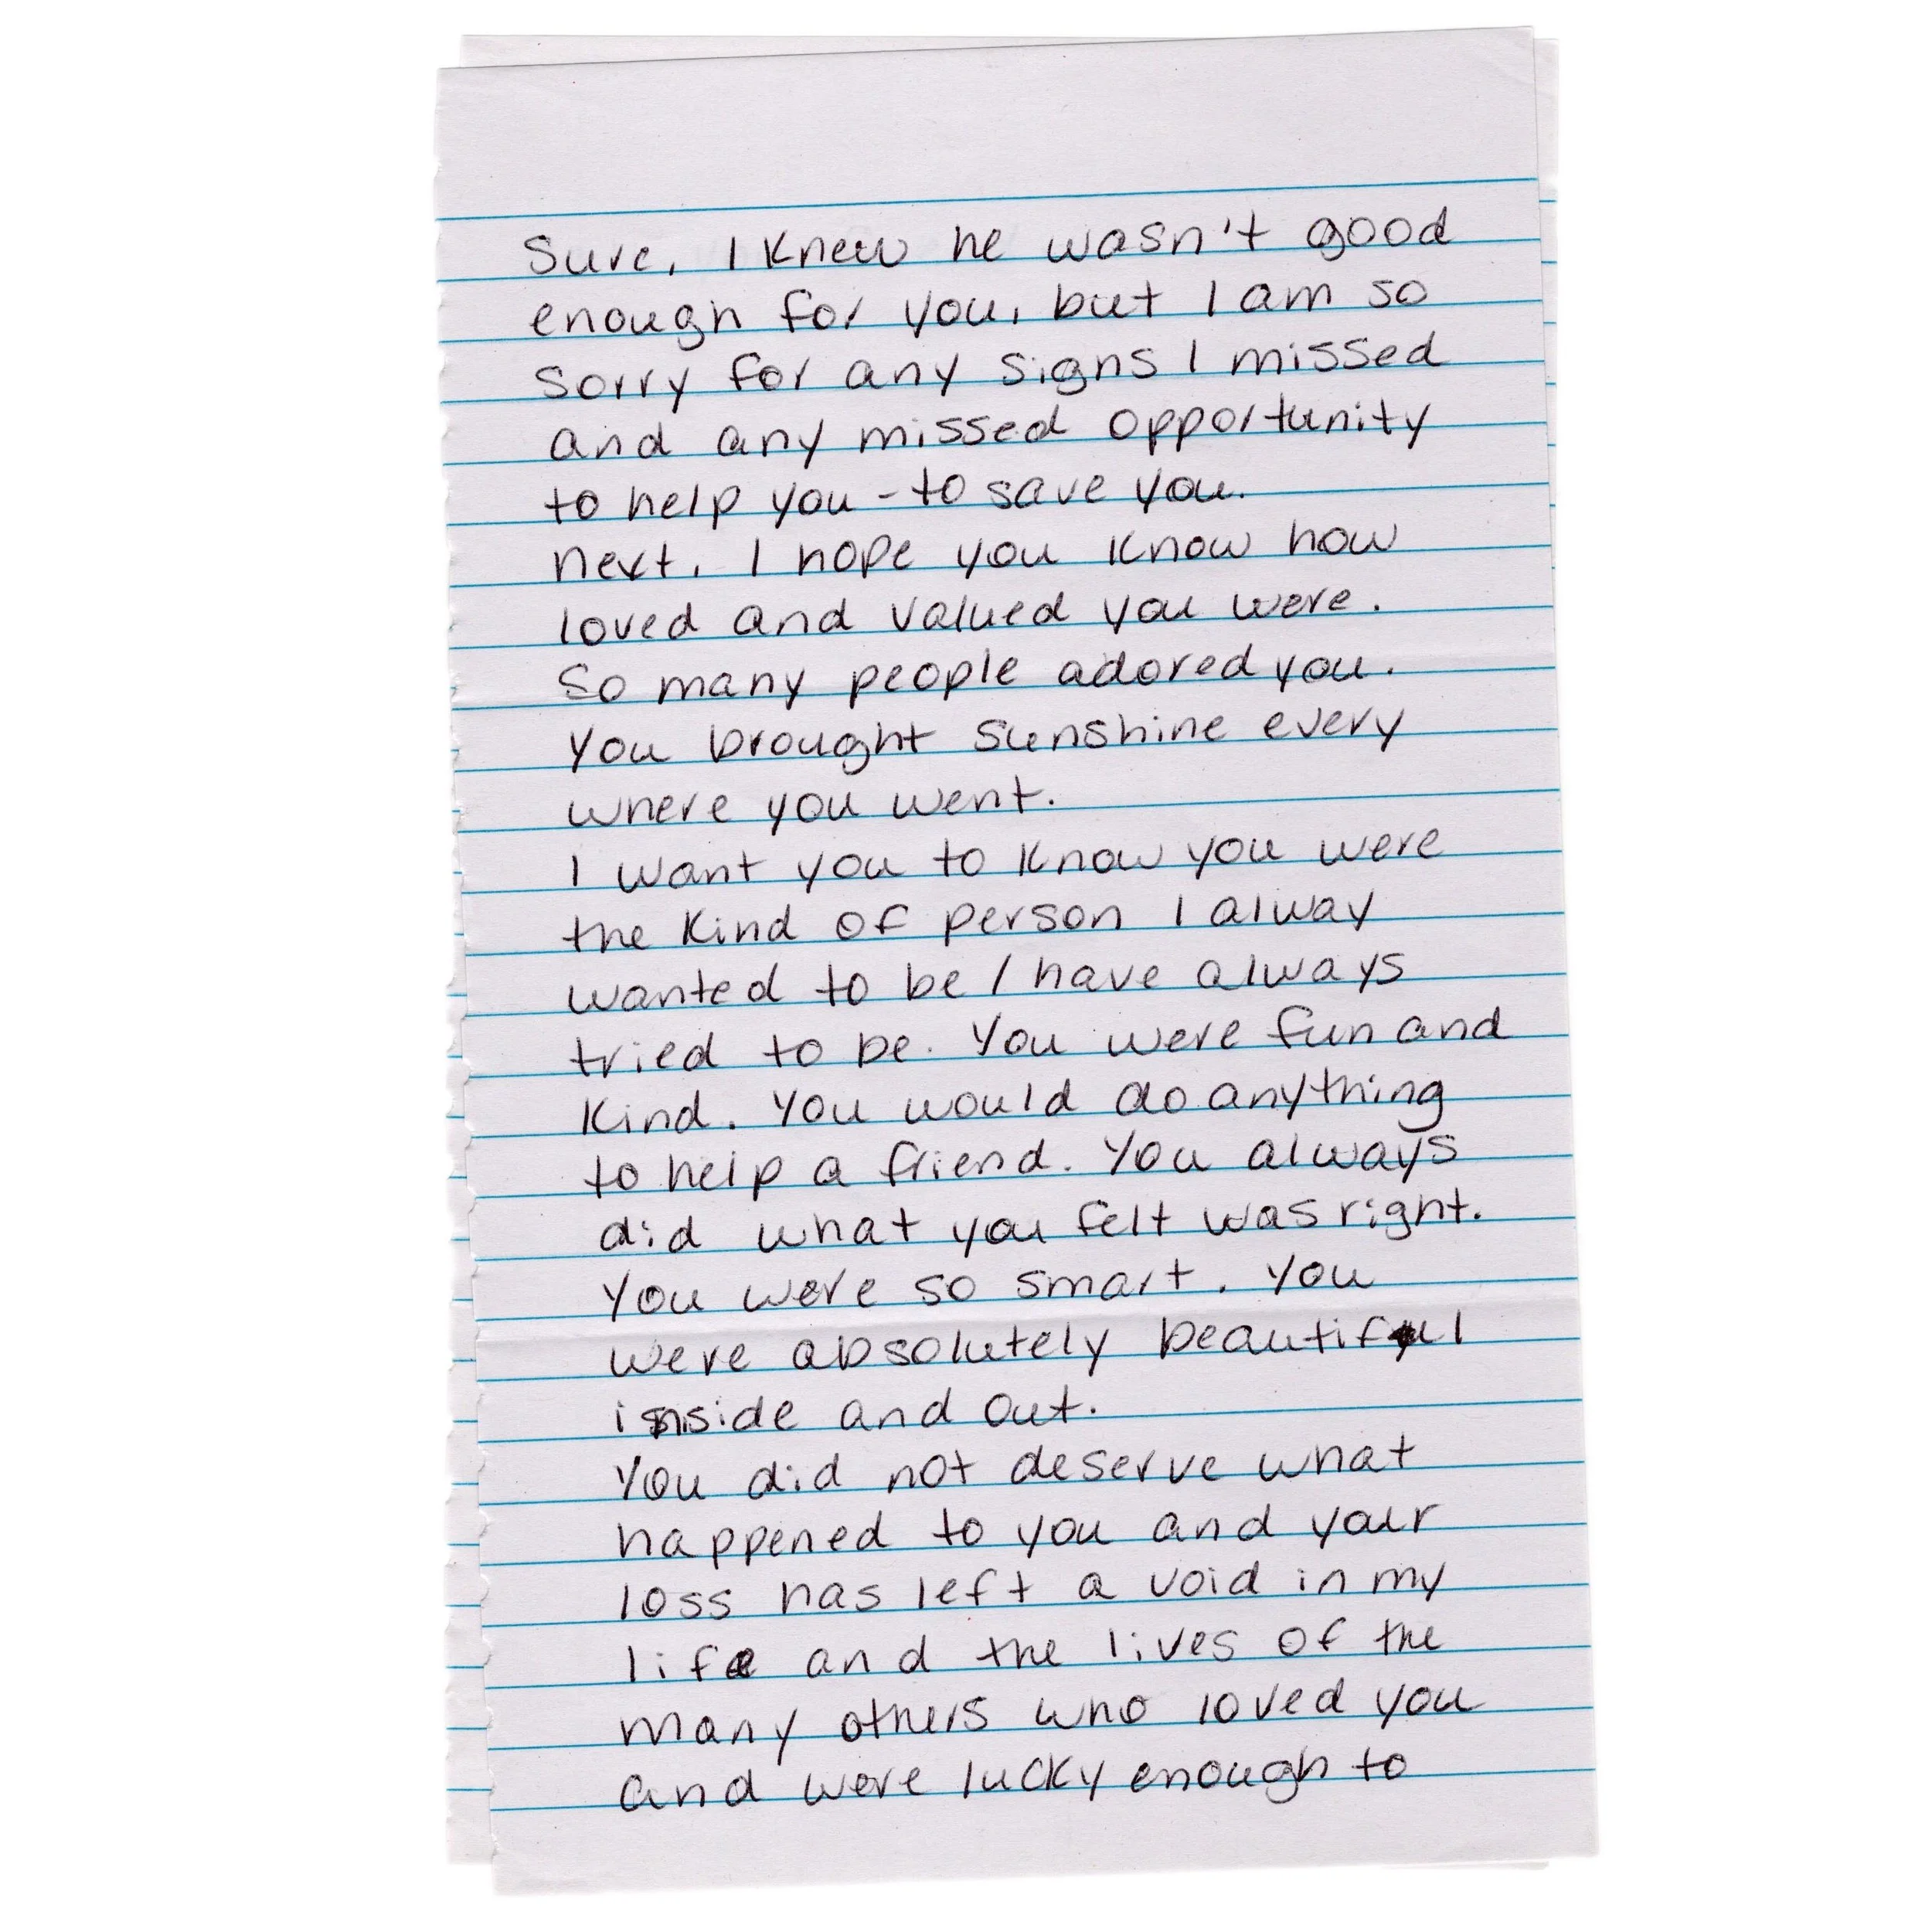 Sure, I knew he wasn't good
enough for you, but I am so
sorry for any signs I missed
and any missed opportunity
to help you - to save you.
Next, I hope you know how
loved and valued you were.
So many people adored you.
You brought sunshine every
where you went.
I want you to know you were
the kind of person I alway
wanted to be / have always
tried to be. You were fun and
kind. You would do anything
to help a friend. You always
did what you felt was right.
You were so smart. You
were absolutely beautiful
inside and out.
You did not deserve what
happened to you and your
loss has left a void in my
life and the lives of the
many others who loved you
and were lucky enough to